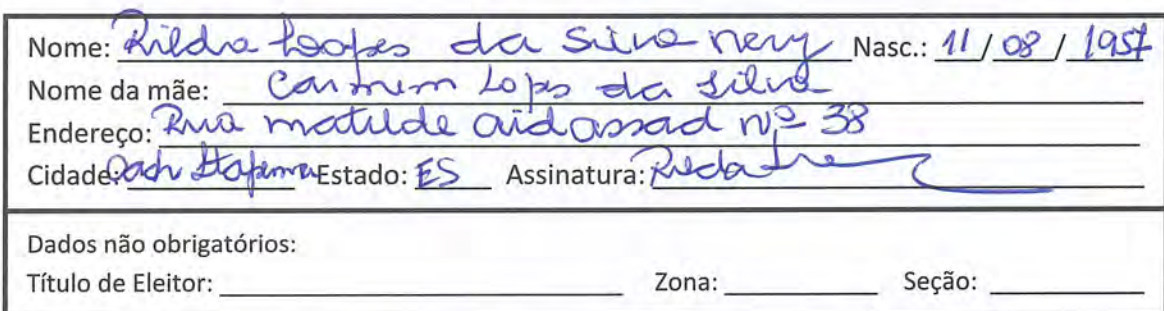 Nome: Rildra Loopes da Silva nery Nasc.: 11 / 08 / 1957
Nome da mãe: Carmem Lops da Silva
Endereço: Rua matilde aidassad nº 38
Cidade: Itapemr Estado: ES Assinatura: Rilda
Dados não obrigatórios:
Título de Eleitor: Zona: Seção: